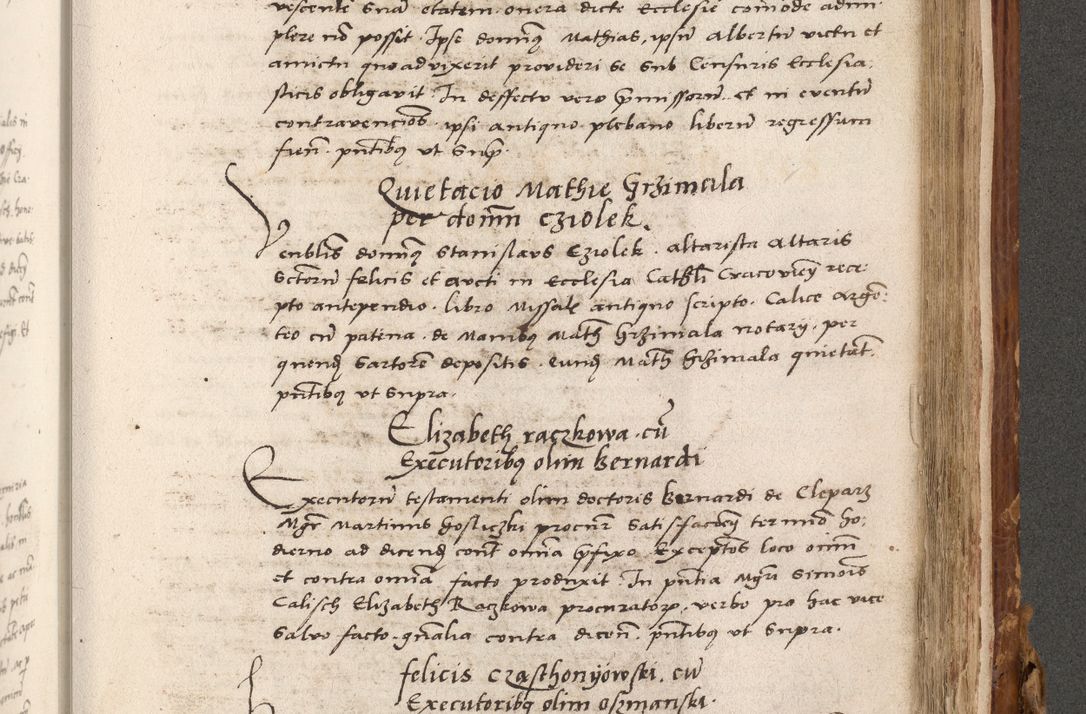 vescente sua etatem onera dicte Ecclesie comode adim
plere nō possit. Ipse domnꝰ Mathias, ipsū Albertū victu et
amictu quoad vixerit provideri se sub Censuris Ecclesia,
sticis obligavit In deffectu vero p̄missorū et in eventū
contravencioīs ipsi antiquo plebano liberū regressum
fieri. pn̄tibꝰ ut sup̄
Quietacio Mathie Grzimala
per domn̄ Cziolek.
Venblis domnꝰ Stanislaus Cziolek. Altarista Altaris
Sctorū felicis et aucti in Ecclesia Cathl̄i Cracovien̄ rece:
pto antependio. libro Missale antiquo scripto. Calice argen:
teo cū patena. de Manibꝰ Math̄ Grzimala notarÿ. per
quend̄ Sartorē depositis. eund̄ Math̄ Grzimala quietat̄.
pn̄tibꝰ ut supra.
Elizabeth raczkowa. cū
Executoribꝰ olim Bernardi
Executorū testamenti olim doctoris Bernardi de Cleparz
Mgr̄ Martinus procur̄ satisfacien̄ termino ho:
dierno ad dicend̄ cont̄ omnia p̄fixo Exceptōs loco omn̄
et contra omnia facto produxit In pn̄tia Mgr̄i Simonis
Calisch Elizabeth Raczkowa procurator̄. verbo pro hac vice
Salvo facto. gn̄alia contra dicen̄. pn̄tibꝰ ut supra.
felicis Czasthonÿowski. cū
Executoribꝰ olim Oszmanski.